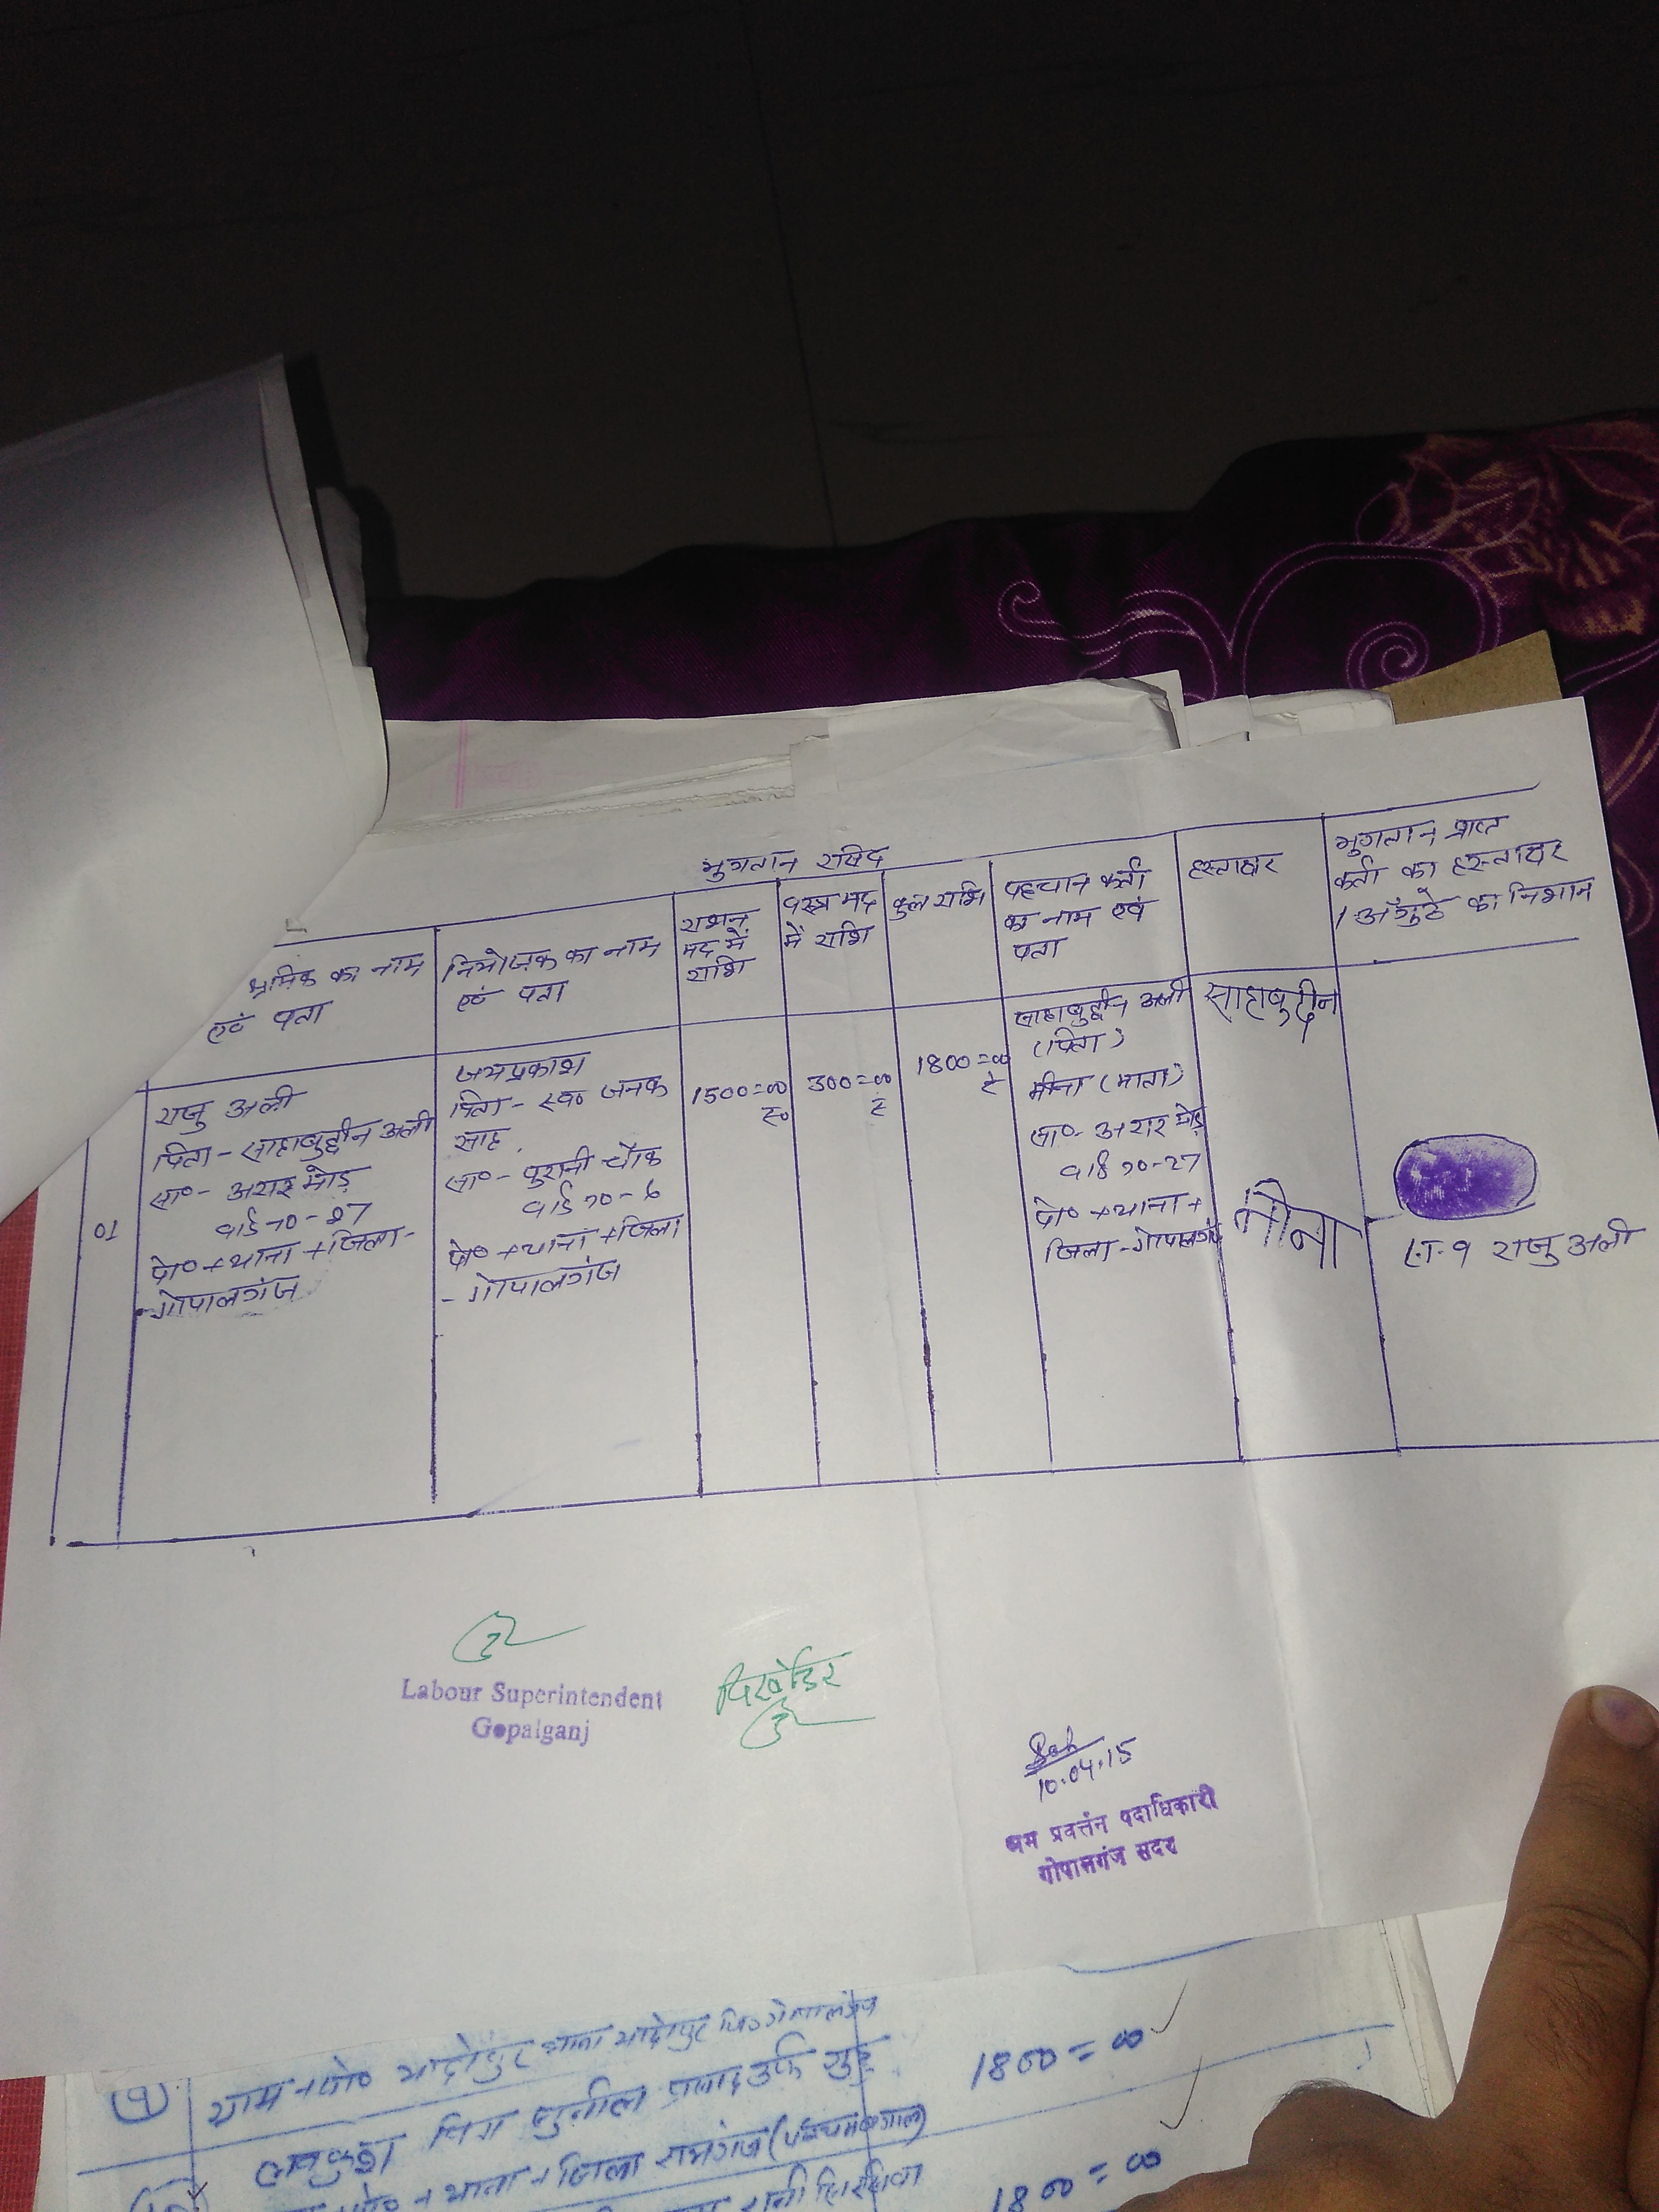 भुगतान रसिद
श्रमिक का नाम
एवं पता
नियोजक का नाम
एवं पता
राशन
मद में
राशि
वस्त्र मद
में राशि
कुल राशि
पहचान कर्ता
का नाम एवं
पता
हस्ताक्षर
भुगतान प्राप्त
कर्ता का हस्ताक्षर
/अँगुठे का निशान
01
राजु अली
पिता - साहाबुद्दीन अली
सा०- अरार मोड़
वार्ड न०-27
पो० + थाना + जिला-
- गोपालगंज
जयप्रकाश
पिता - स्व० जनक
साह
सा०- पुरानी चौक
वार्ड न०-6
पो० + थाना + जिला
- गोपालगंज
1500=00
रु०
300=00
रु
1800=00
रु
साहाबुद्दीन अली
(पिता)
मीना (माता)
सा०- अरार मोड़
वार्ड न०-27
पो० + थाना +
जिला - गोपालगंज
साहाबुद्दीन
मीना
राजु अली
Labour Superintendent
Gopalganj
10.04.15
श्रम प्रवर्त्तन पदाधिकारी
गोपालगंज सदर
ग्राम + पो०
1800=00
लवकुश पिता सुनील प्रसाद उर्फ
थाना + जिला
1800=00